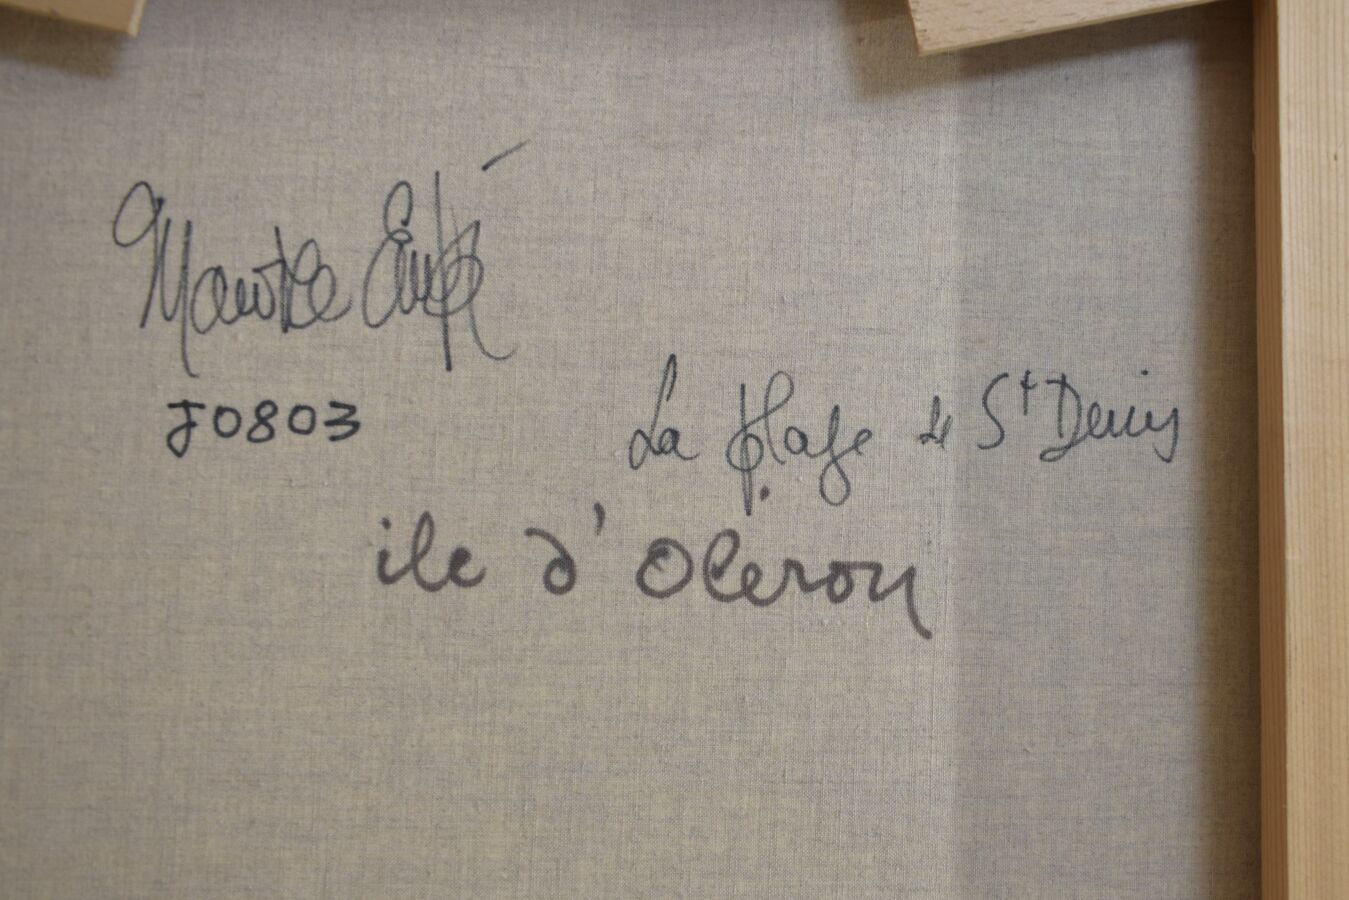 Maurice Empi
J0803
La plage de St Denis
ile d'Oleron